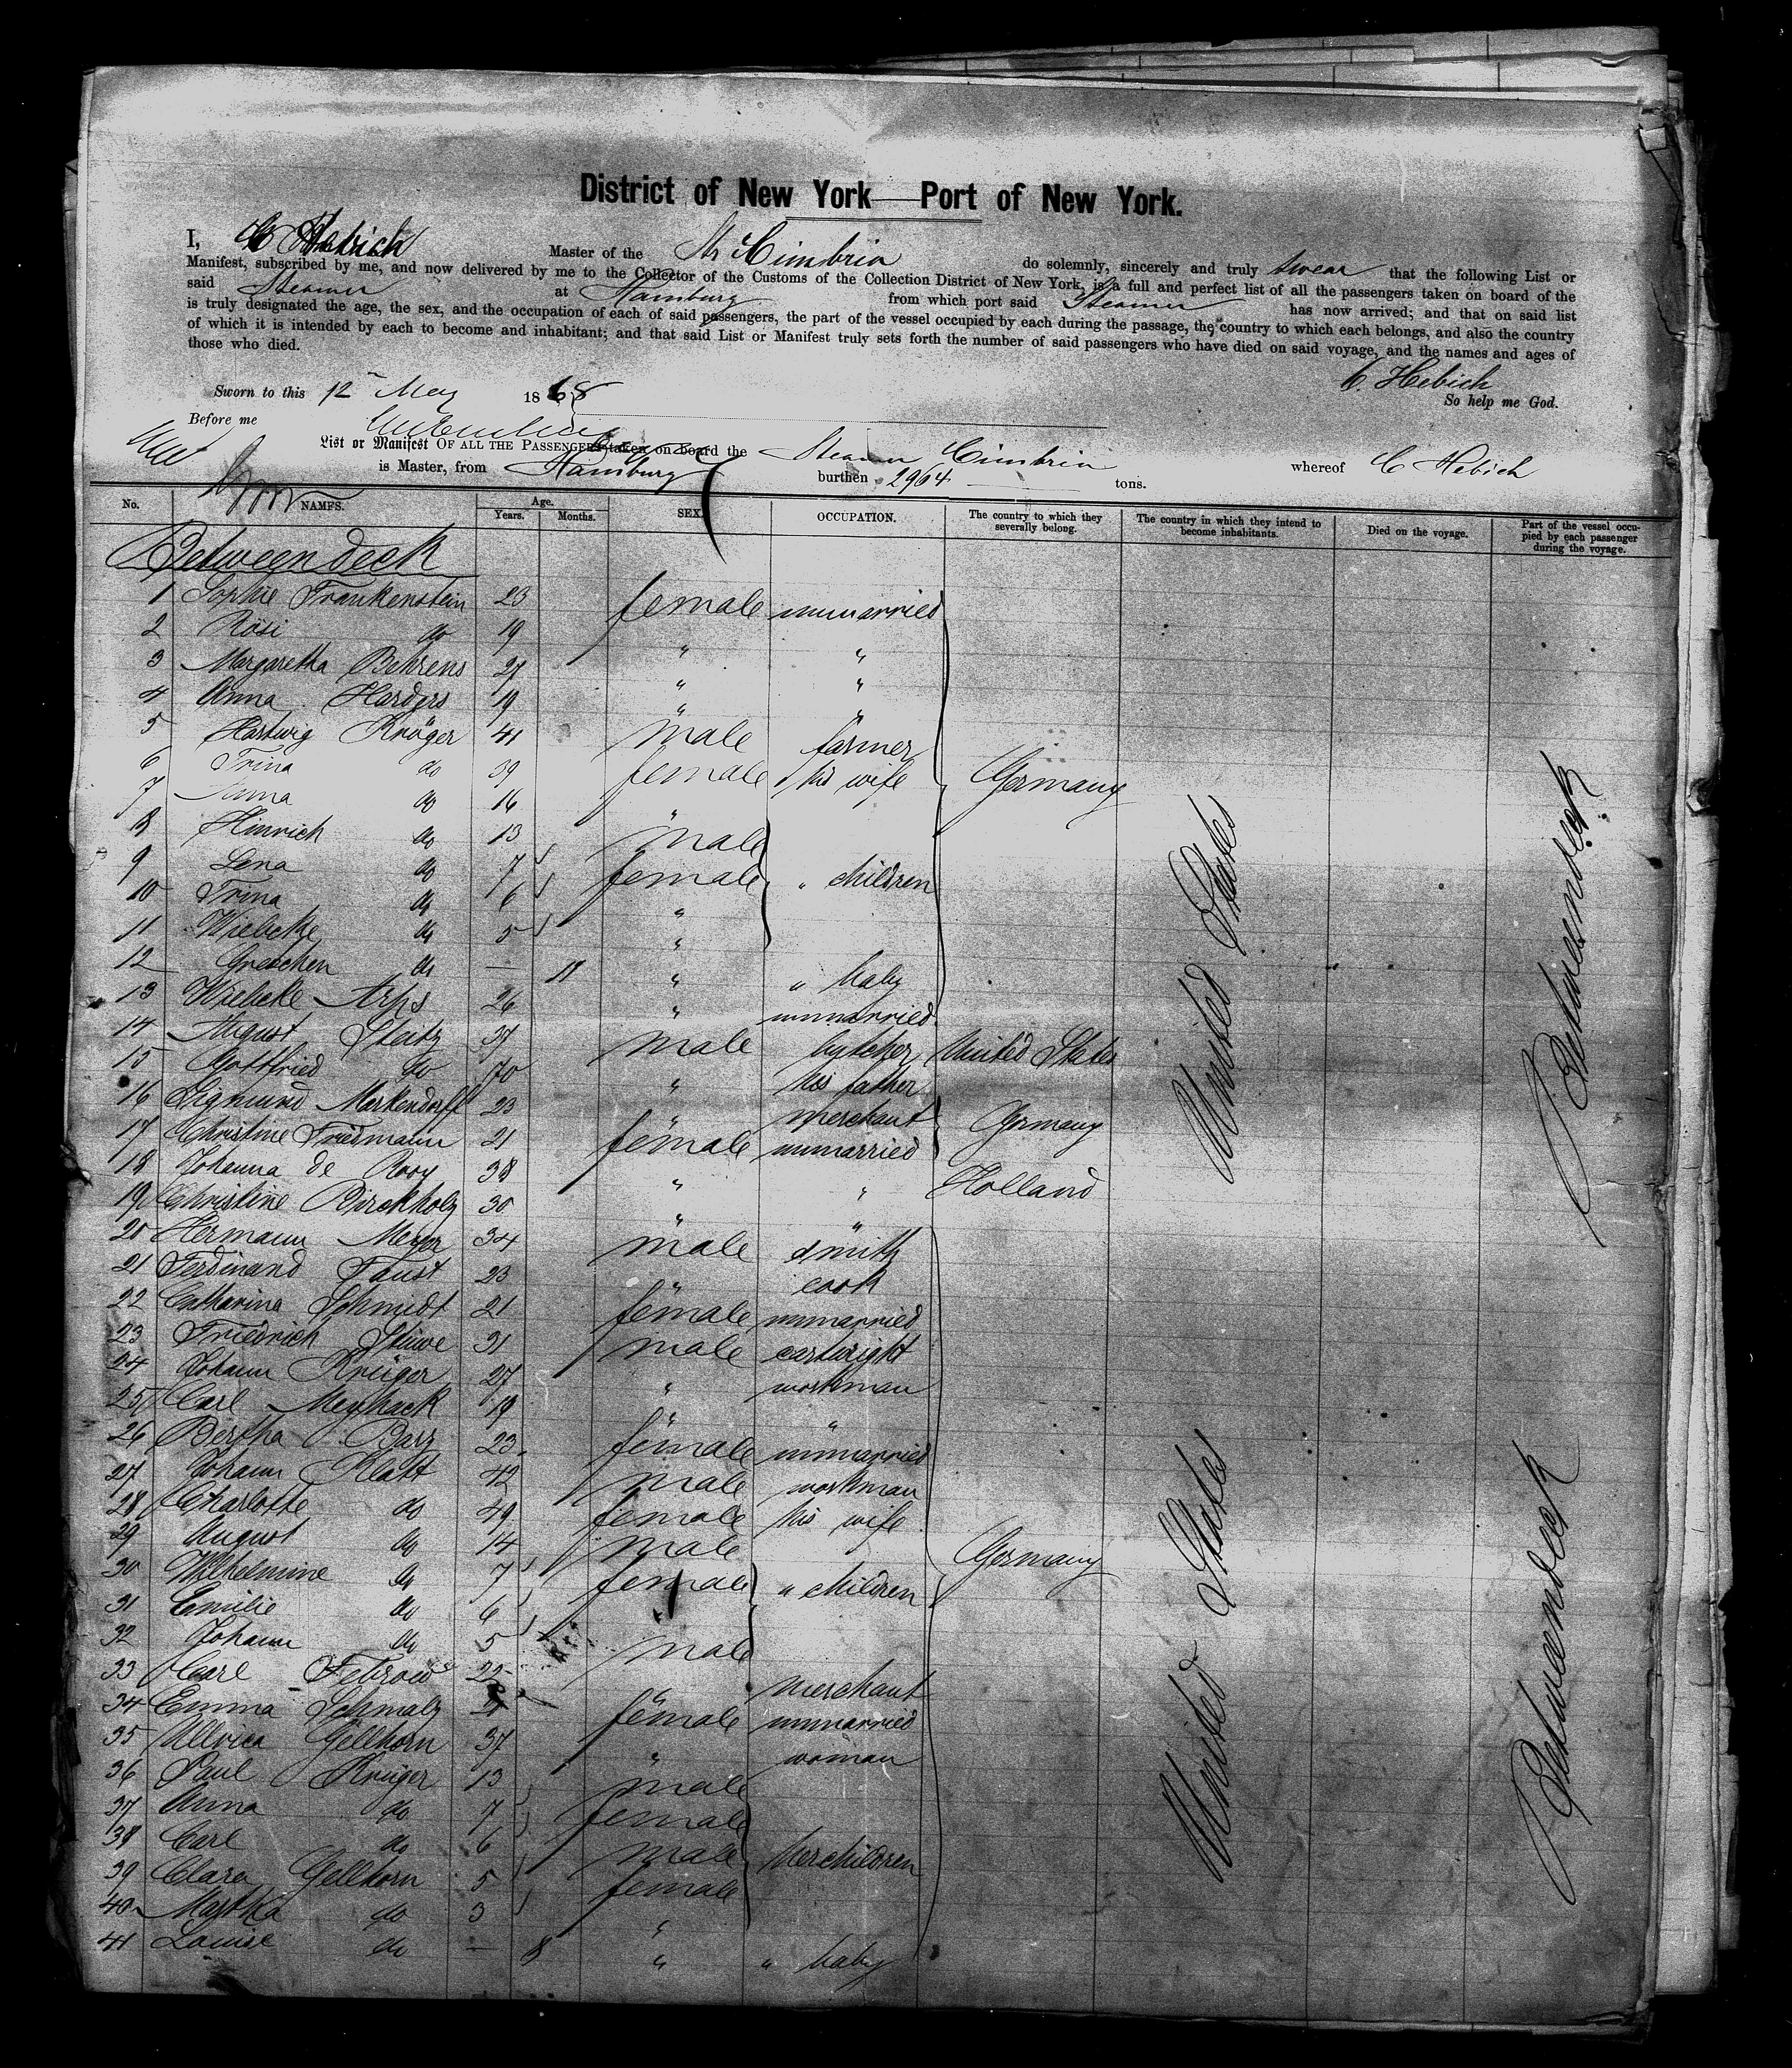 District of New York — Port of New York.
I, C Hebich Master of the Str Cimbria do solemnly, sincerely and truly swear that the following List or
Manifest, subscribed by me, and now delivered by me to the Collector of the Customs of the Collection District of New York, is a full and perfect list of all the passengers taken on board of the
said Steamer at Hamburg from which port said Steamer has now arrived; and that on said list
is truly designated the age, the sex, and the occupation of each of said passengers, the part of the vessel occupied by each during the passage, the country to which each belongs, and also the country
of which it is intended by each to become and inhabitant; and that said List or Manifest truly sets forth the number of said passengers who have died on said voyage, and the names and ages of
those who died.
C. Hebich
Sworn to this 12 May 1868 So help me God.
Before me
List or Manifest OF ALL THE PASSENGERS taken on board the Steamer Cimbria whereof C Hebich
is Master, from Hamburg burthen 2964 tons.
No. NAMES. Age. Years. Months. SEX. OCCUPATION. The country to which they severally belong. The country in which they intend to become inhabitants. Died on the voyage. Part of the vessel occupied by each passenger during the voyage.
Betweendeck
1 Sophie Frankenstein 23 female unmarried
2 Rosi do 19 " "
3 Margaretha Behrens 27 " "
4 Anna Harders 19 " "
5 Hartwig Kröger 41 male farmer
6 Trina do 39 female his wife Germany
7 Anna do 16 "
8 Hinrich do 13 male
9 Lena do 7 female " children
10 Trina do 6 "
11 Wiebcke do 5 "
12 Greschen do — 11 " " baby
13 Wiebcke Arps 26 " unmarried
14 August Steitz 37 male butcher United States
15 Gottfried do 70 " his father
16 Sigmund Markendorff 23 " merchant Germany
17 Christine Friedmann 21 female unmarried
18 Johanna de Rooy 38 " " Holland
19 Christine Birckholz 30 " "
20 Hermann Meyer 34 male smith
21 Ferdinand Faust 23 " cook
22 Catharina Schmidt 21 female unmarried
23 Friedrich Stüwe 31 male cartwright
24 Johann Krüger 27 " workman
25 Carl Meyhack 19 " "
26 Bertha Barz 23 female unmarried
27 Johann Klatt 42 male workman
28 Charlotte do 49 female his wife
29 August do 14 male Germany
30 Wilhelmine do 7 female " children
31 Emilie do 6 "
32 Johann do 5 male
33 Carl 22 " merchant
34 Emma Schmalz female unmarried
35 Ullrica Gellhorn 37 " woman
36 Paul Krüger 13 male
37 Anna do 7 female
38 Carl do 6 male her children
39 Clara Gellhorn 5 female
40 Martha do 3 "
41 Louise do — 8 " " baby
United States
Betweendeck
United States
Betweendeck